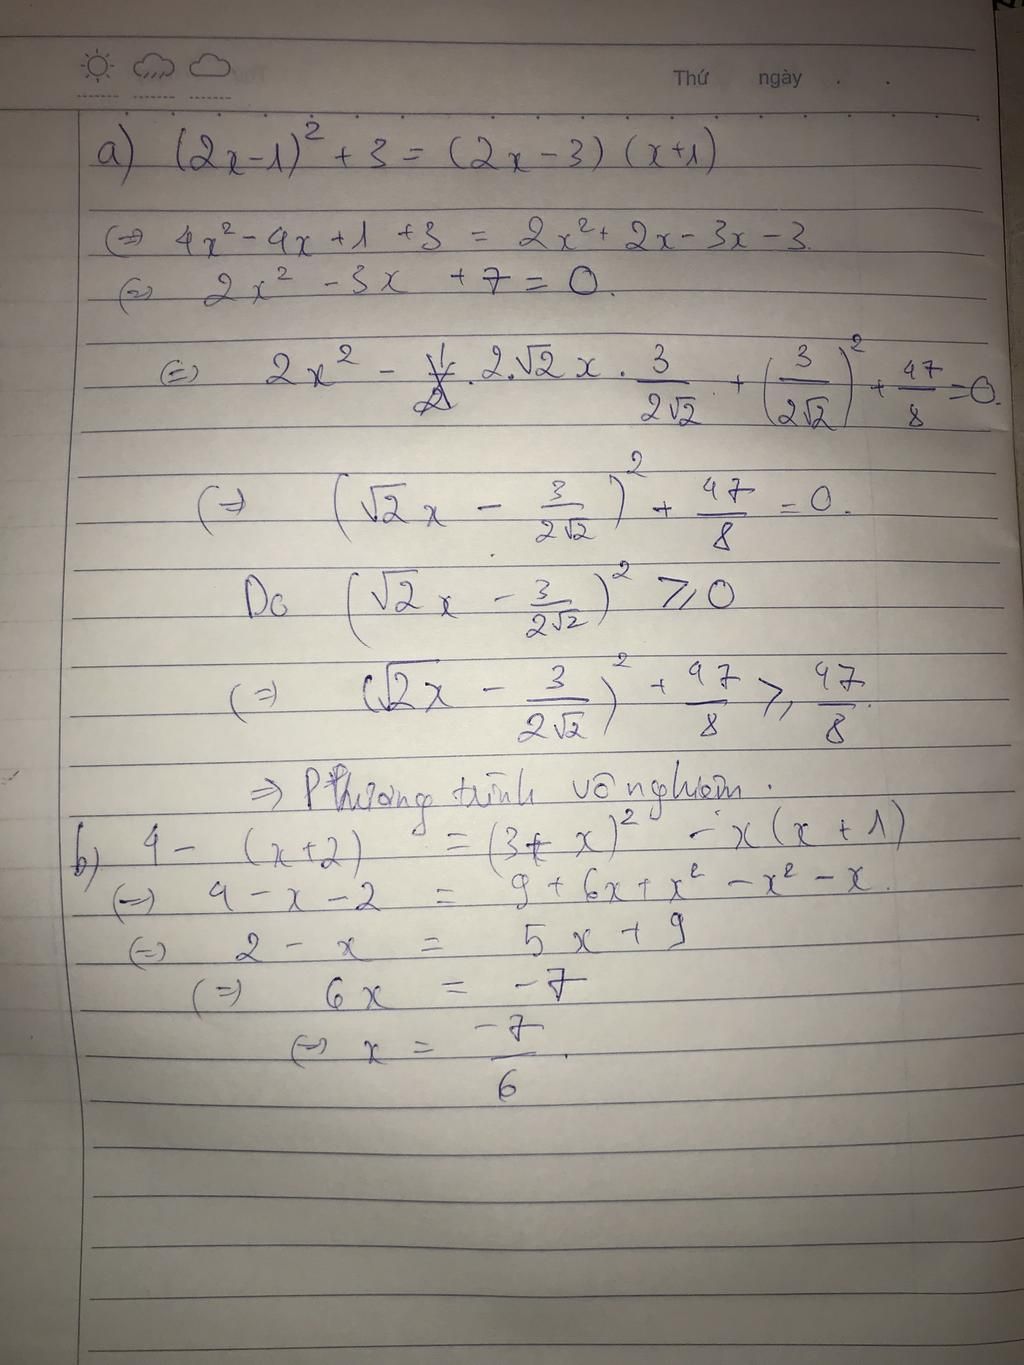 Thứ ngày . .
a) (2x-1)² + 3 = (2x - 3) (x+1)
(=) 4x² - 4x + 1 + 3 = 2x² + 2x - 3x - 3.
(=) 2x² - 3x + 7 = 0.
(=) 2x² - . 2.√2 x . 3/2√2 + (3/2√2)² + 47/8 = 0.
(=) (√2x - 3/2√2)² + 47/8 = 0.
Do (√2x - 3/2√2)² ⩾ 0
(=) (√2x - 3/2√2)² + 47/8 ⩾ 47/8.
=> Phương trình vô nghiệm.
b) 4 - (x+2) = (3+x)² - x(x+1)
(=) 4 - x - 2 = 9 + 6x + x² - x² - x.
(=) 2 - x = 5x + 9
(=) 6x = -7
(=) x = -7/6.